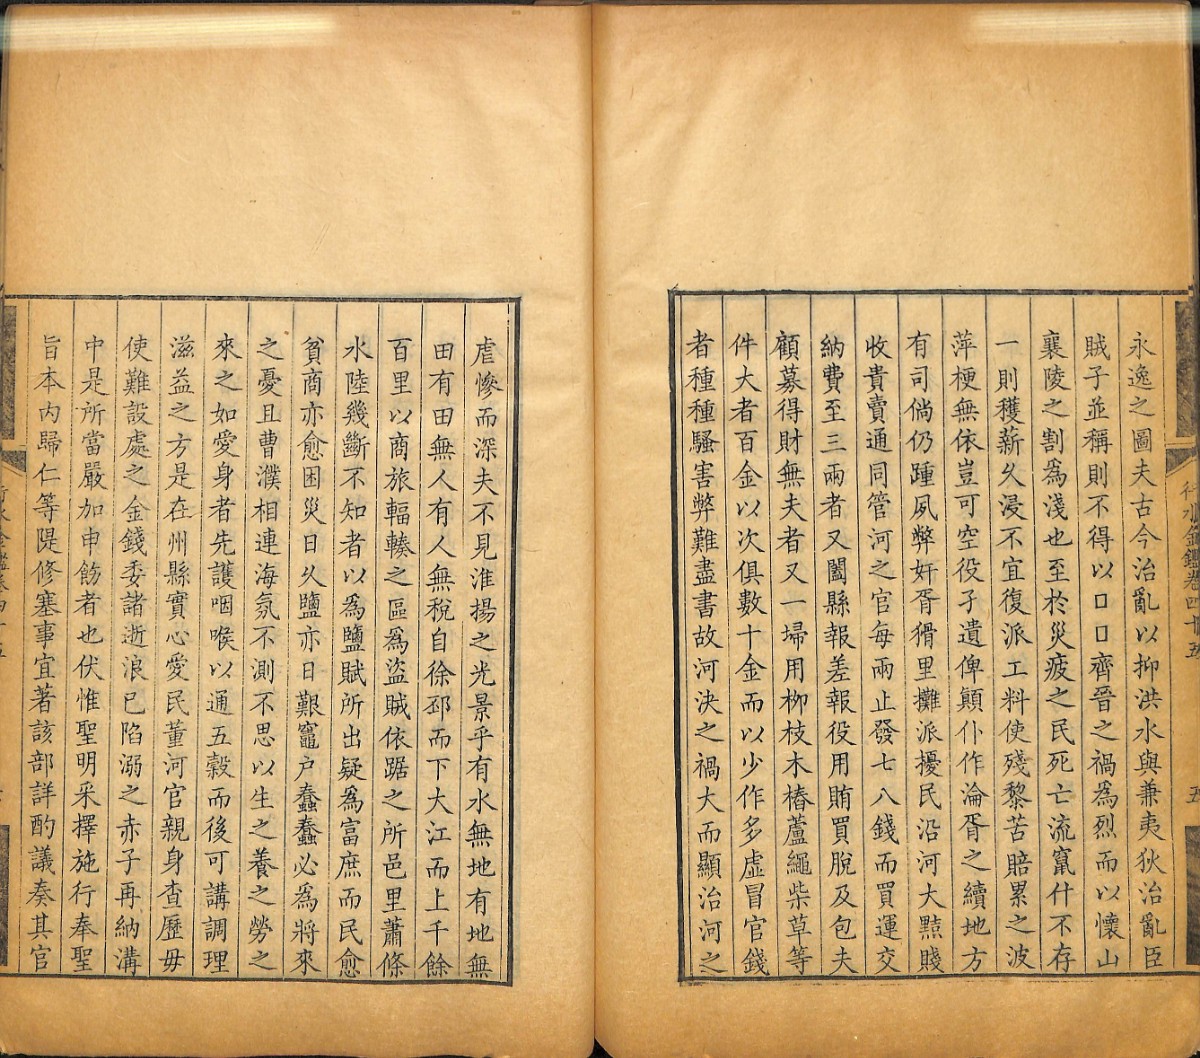 永逸之圖夫古今治亂以抑洪水與兼夷狄治亂臣
賊子並稱則不得以口口齊晉之禍爲烈而以懷山
襄陵之割爲淺也至於災疲之民死亡流竄什不存
一則穫薪久浸不宜復派工料使殘黎苦賠累之波
萍梗無依豈可空役子遺俾顛仆作淪胥之續地方
有司倘仍踵夙弊奸胥猾里攤派擾民沿河大㸃賤
收貴賣通同管河之官每兩止發七八錢而買運交
納費至三兩者又闔縣報差報役用賄買脫及包夫
顧募得財無夫者又一埽用柳枝木樁蘆繩柴草等
件大者百金以次俱數十金而以少作多虛冒官錢
者種種騷害弊難盡書故河決之禍大而顯治河之
行水金鑑卷四十五
五
虐慘而深夫不見淮揚之光景乎有水無地有地無
田有田無人有人無稅自徐邳而下大江而上千餘
百里以商旅輻輳之區爲盜賊依踞之所邑里蕭條
水陸幾斷不知者以爲鹽賦所出疑爲富庶而民愈
貧商亦愈困災日久鹽亦日艱竈户蠢蠢必爲將來
之憂且曹濮相連海氛不測不思以生之養之勞之
來之如愛身者先護咽喉以通五穀而後可講調理
滋益之方是在州縣實心愛民董河官親身查歷毋
使難設處之金錢委諸逝浪已陷溺之赤子再納溝
中是所當嚴加申飭者也伏惟聖明采擇施行奉聖
旨本內歸仁等隄修塞事宜著該部詳酌議奏其官